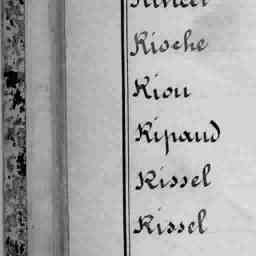 Kioche
Kiou
Kipaud
Kissel
Kissel